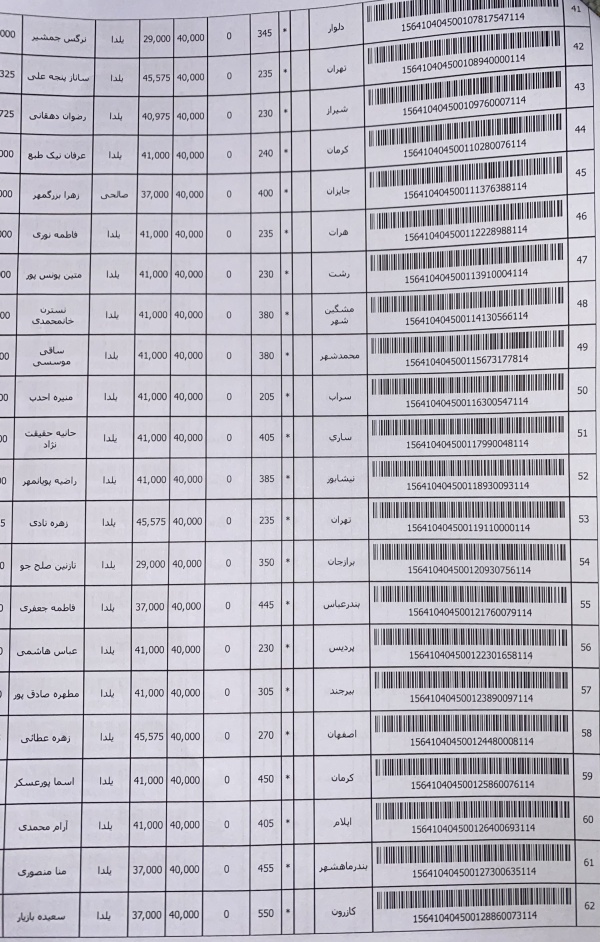 41 156410404500107817547114 دلوار * 345 0 40,000 29,000 یلدا نرگس جمشیر 000
42 156410404500108940000114 تهران * 235 0 40,000 45,575 یلدا ساناز پنجه علی 325
43 156410404500109760007114 شیراز * 230 0 40,000 40,975 یلدا رضوان دهقانی 725
44 156410404500110280076114 کرمان * 240 0 40,000 41,000 یلدا عرفان نیک طبع 000
45 156410404500111376388114 جایزان * 400 0 40,000 37,000 صالحی زهرا بزرگمهر 000
46 156410404500112228988114 هرات * 235 0 40,000 41,000 یلدا فاطمه نوری 000
47 156410404500113910004114 رشت * 230 0 40,000 41,000 یلدا متین یونس پور 00
48 156410404500114130566114 مشگین شهر * 380 0 40,000 41,000 یلدا نسترن خانمحمدی 00
49 156410404500115673177814 محمدشهر * 380 0 40,000 41,000 یلدا ساقی موسسی 00
50 156410404500116300547114 سراب * 205 0 40,000 41,000 یلدا منیره احدب 00
51 156410404500117990048114 ساری * 405 0 40,000 41,000 یلدا حانیه حقیقت نژاد 0
52 156410404500118930093114 نیشابور * 385 0 40,000 41,000 یلدا راضیه پویانمهر 0
53 156410404500119110000114 تهران * 235 0 40,000 45,575 یلدا زهره نادی 5
54 156410404500120930756114 برازجان * 350 0 40,000 29,000 یلدا نازنین صلح جو 0
55 156410404500121760079114 بندرعباس * 445 0 40,000 37,000 یلدا فاطمه جعفری
56 156410404500122301658114 پردیس * 230 0 40,000 41,000 یلدا عباس هاشمی
57 156410404500123890097114 بیرجند * 305 0 40,000 41,000 یلدا مطهره صادق پور
58 156410404500124480008114 اصفهان * 270 0 40,000 45,575 یلدا زهره عطائی
59 156410404500125860076114 کرمان * 450 0 40,000 41,000 یلدا اسما پورعسکر
60 156410404500126400693114 ایلام * 405 0 40,000 41,000 یلدا آرام محمدی
61 156410404500127300635114 بندرماهشهر * 455 0 40,000 37,000 یلدا منا منصوری
62 156410404500128860073114 کازرون * 550 0 40,000 37,000 یلدا سعیده بازیار